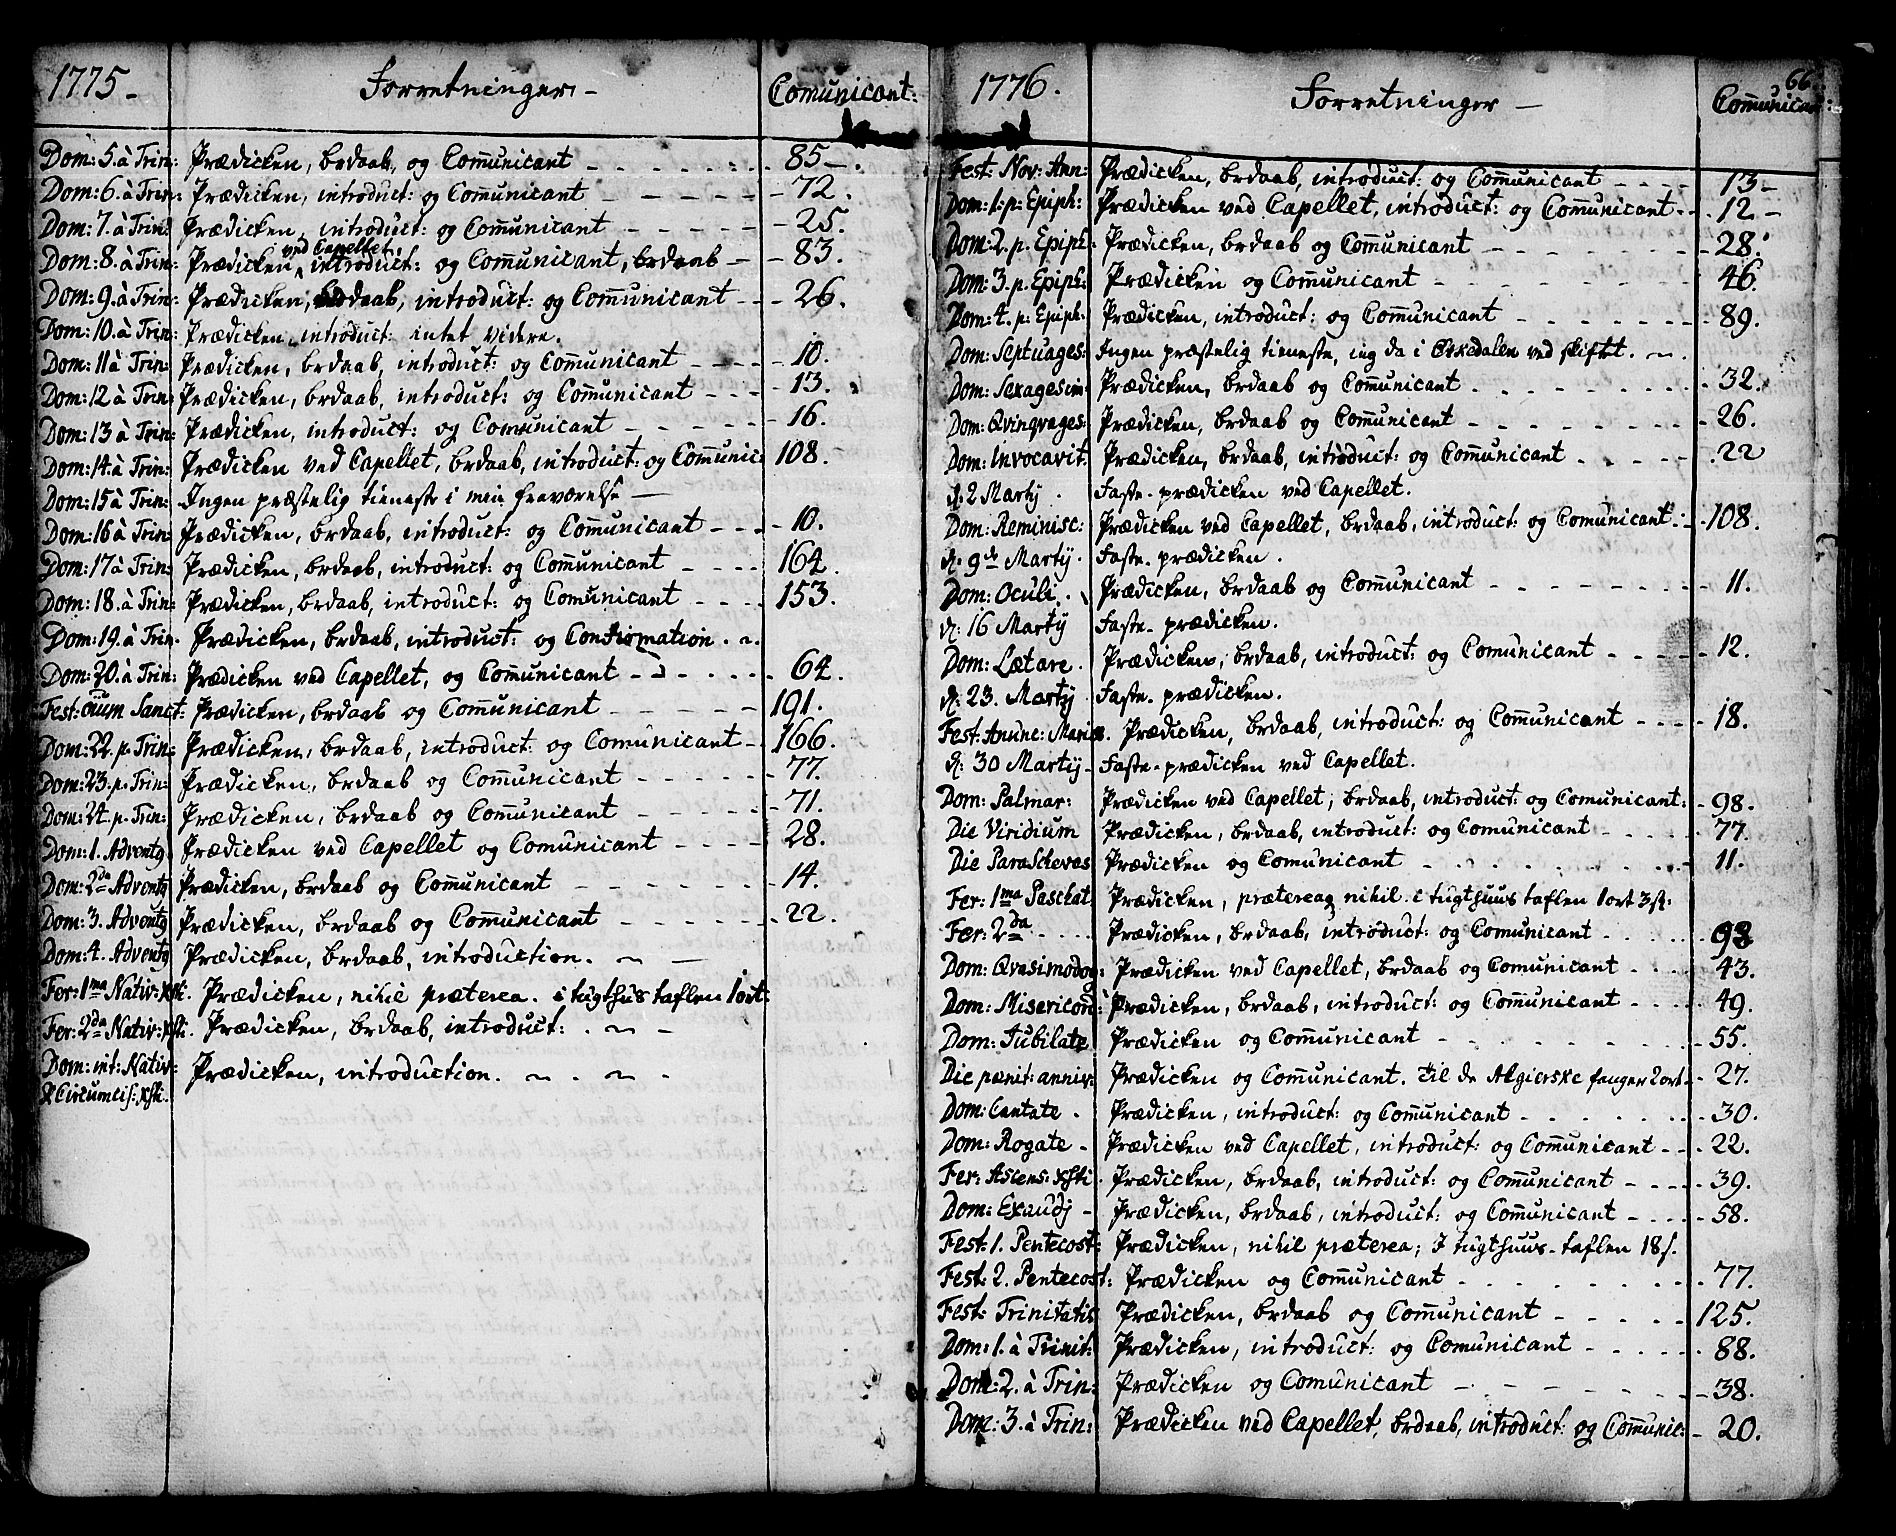 1775.
Forretninger.
Comunicant:
Dom: 5. à Trin: Prædicken, brdaab, og Com̄unicant 85.
Dom: 6. à Trin: Prædicken, introduct: og Com̄unicant 72.
Dom: 7. à Trin: Prædicken, introduct: og Com̄unicant 25.
ved Capellet,
Dom: 8. à Trin: Prædicken, introduct: og Com̄unicant, brdaab 83.
Dom: 9. à Trin: Prædicken, brdaab, introduct: og Com̄unicant 26.
Dom: 10. à Trin: Prædicken, introduct: intet videre.
Dom: 11 à Trin: Prædicken, brdaab, introduct: og Com̄unicant 10.
Dom: 12 à Trin: Prædicken, brdaab, introduct: og Com̄unicant 13.
Dom: 13 à Trin: Prædicken, introduct: og Com̄unicant 16.
Dom: 14. à Trin: Prædicken ved Capellet, brdaab, introduct: og Com̄unic: 108.
Dom: 15 à Trin: Ingen præstelig tieneste i min fraværelse
Dom: 16 à Trin: Prædicken, brdaab, introduct: og Com̄unicant 10.
Dom: 17 à Trin: Prædicken, brdaab, introduct: og Com̄unicant 164.
Dom: 18. à Trin: Prædicken, brdaab, introduct: og Com̄unicant 153.
Dom: 19. à Trin. Prædicken, brdaab, introduct: og Confirmation.
Dom: 20. à Trin: Prædicken ved Capellet, og Com̄unicant 64.
Fest: ōium Sanct: Prædicken, brdaab og Com̄unicant 191.
Dom: 22. p. Trin: Prædicken, brdaab, introduct: og Com̄unicant 166.
Dom: 23. p. Trin: Prædicken, brdaab og Com̄unicant 77.
Dom: 24. p. Trin: Prædicken, brdaab og Com̄unicant 71.
Dom: 1. Adventq Prædicken ved Capellet og Com̄unicant 28.
Dom: 2da Adventq Prædicken, brdaab og Com̄unicant 14.
Dom: 3. Adventq Prædicken, brdaab og Com̄unicant 22.
Dom: 4. Adventq Prædicken, brdaab, introduction.
Fer: 1ma Nativ: xsti. Prædicken, nihil præterea. i tugthus taflen 1 ort:
Fer: 2da Nativ: xsti. Prædicken, brdaab, introduct:
Dom: int: Nativ: Prædicken, introduction.
& Circumcis: xsti.
1776.
Forretninger
Com̄unicant:
66.
Fest: Nov: Ann: Prædicken, brdaab, introduct: og Com̄unicant 13
Dom: 1: p: Epiph: Prædicken ved Capellet, introduct: og Com̄unicant 12
Dom: 2. p. Epiph: Prædicken, brdaab og Com̄unicant 28.
Dom: 3. p. Epiph: Prædicken og Com̄unicant 46.
Dom: 4. p: Epiph: Prædicken, introduct: og Com̄unicant 89.
Dom: Septuages: Ingen præstelig tieneste, ieg da i Orkedalen ved skiftet.
Dom: Sexagesim: Prædicken, brdaab og Com̄unicant 32.
Dom: Qvinqvages: Prædicken, brdaab og Com̄unicant 26.
Dom: Invocavit. Prædicken, brdaab, introduct: og Com̄unicant 22
d: 2 Martij. Faste-prædicken ved Capellet.
Dom: Reminisc: Prædicken ved Capellet, brdaab, introduct: og Com̄unicant 108.
d. 9de Martij. Faste-prædicken.
Dom: Oculi. Prædicken, brdaab og Com̄unicant 11.
d: 16 Martij Faste-prædicken.
Dom: Lætare. Prædicken, brdaab, introduct: og Com̄unicant 12.
d: 23. Martij. Faste-prædicken.
Fest: Anunc: Mariæ. Prædicken, brdaab, introduct: og Com̄unicant 18.
d: 30 Martij. Faste-prædicken ved Capellet.
Dom: Palmar: Prædicken ved Capellet, brdaab, introduct: og Com̄unicant: 98.
Die Viridium Prædicken, brdaab, introduct: og Com̄unicant 77.
Die ParaScheves Prædicken og Com̄unicant 11.
Fer: 1ma Paschat. Prædicken, præterea nihil. i tugthuus taflen 1 ort 3 s:
Fer: 2da Prædicken, brdaab, introduct: og Com̄unicant 93
Dom: Qvasimodog: Prædicken ved Capellet, brdaab og Com̄unicant 43.
Dom: Misericord: Prædicken, brdaab, introduct: og Com̄unicant 49.
Dom: Jubilate Prædicken og Com̄unicant 55.
Die pænit: anniv: Prædicken og Com̄unicant. til de Algierske fanger 2 ort 27.
Dom: Cantate. Prædicken, introduct: og Com̄unicant 30.
Dom: Rogate Prædicken ved Capellet, introduct: og Com̄unicant 22.
Fer: Ascens: xsti. Prædicken, brdaab, introduct: og Com̄unicant 39.
Dom: Exaudj Prædicken, brdaab, introduct: og Com̄unicant 58.
Fest: 1. Pentecost: Prædicken, nihil præterea; I tugthuus-taflen 18 s.
Fest: 2. Pentecost: Prædicken og Com̄unicant 77.
Fest: Trinitatis Prædicken, brdaab og Com̄unicant 125.
Dom: 1. à Trinit: Prædicken, introduct: og Com̄unicant 88.
Dom: 2. à Trin: Prædicken og Com̄unicant 38.
Dom: 3. à Trin: Prædicken ved Capellet, brdaab, introduct: og Com̄unic: 20.